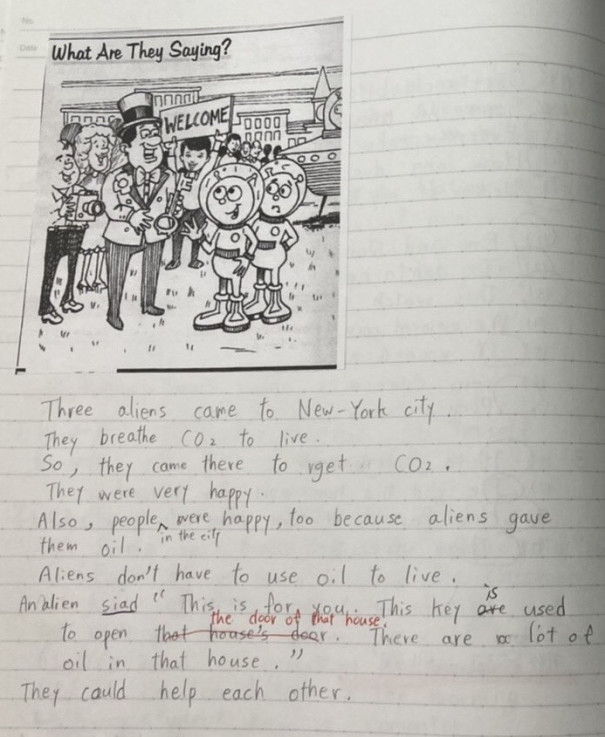 No.
Date
What Are They Saying?
WELCOME
Three aliens came to New-York city.
They breathe CO2 to live.
So, they came there to rget CO2.
They were very happy.
Also, people were happy, too because aliens gave
in the city
them oil.
Aliens don't have to use oil to live.
is
An alien siad " This is for you. This key are used
the door of that house.
to open that house's door. There are a lot of
oil in that house. "
They could help each other.